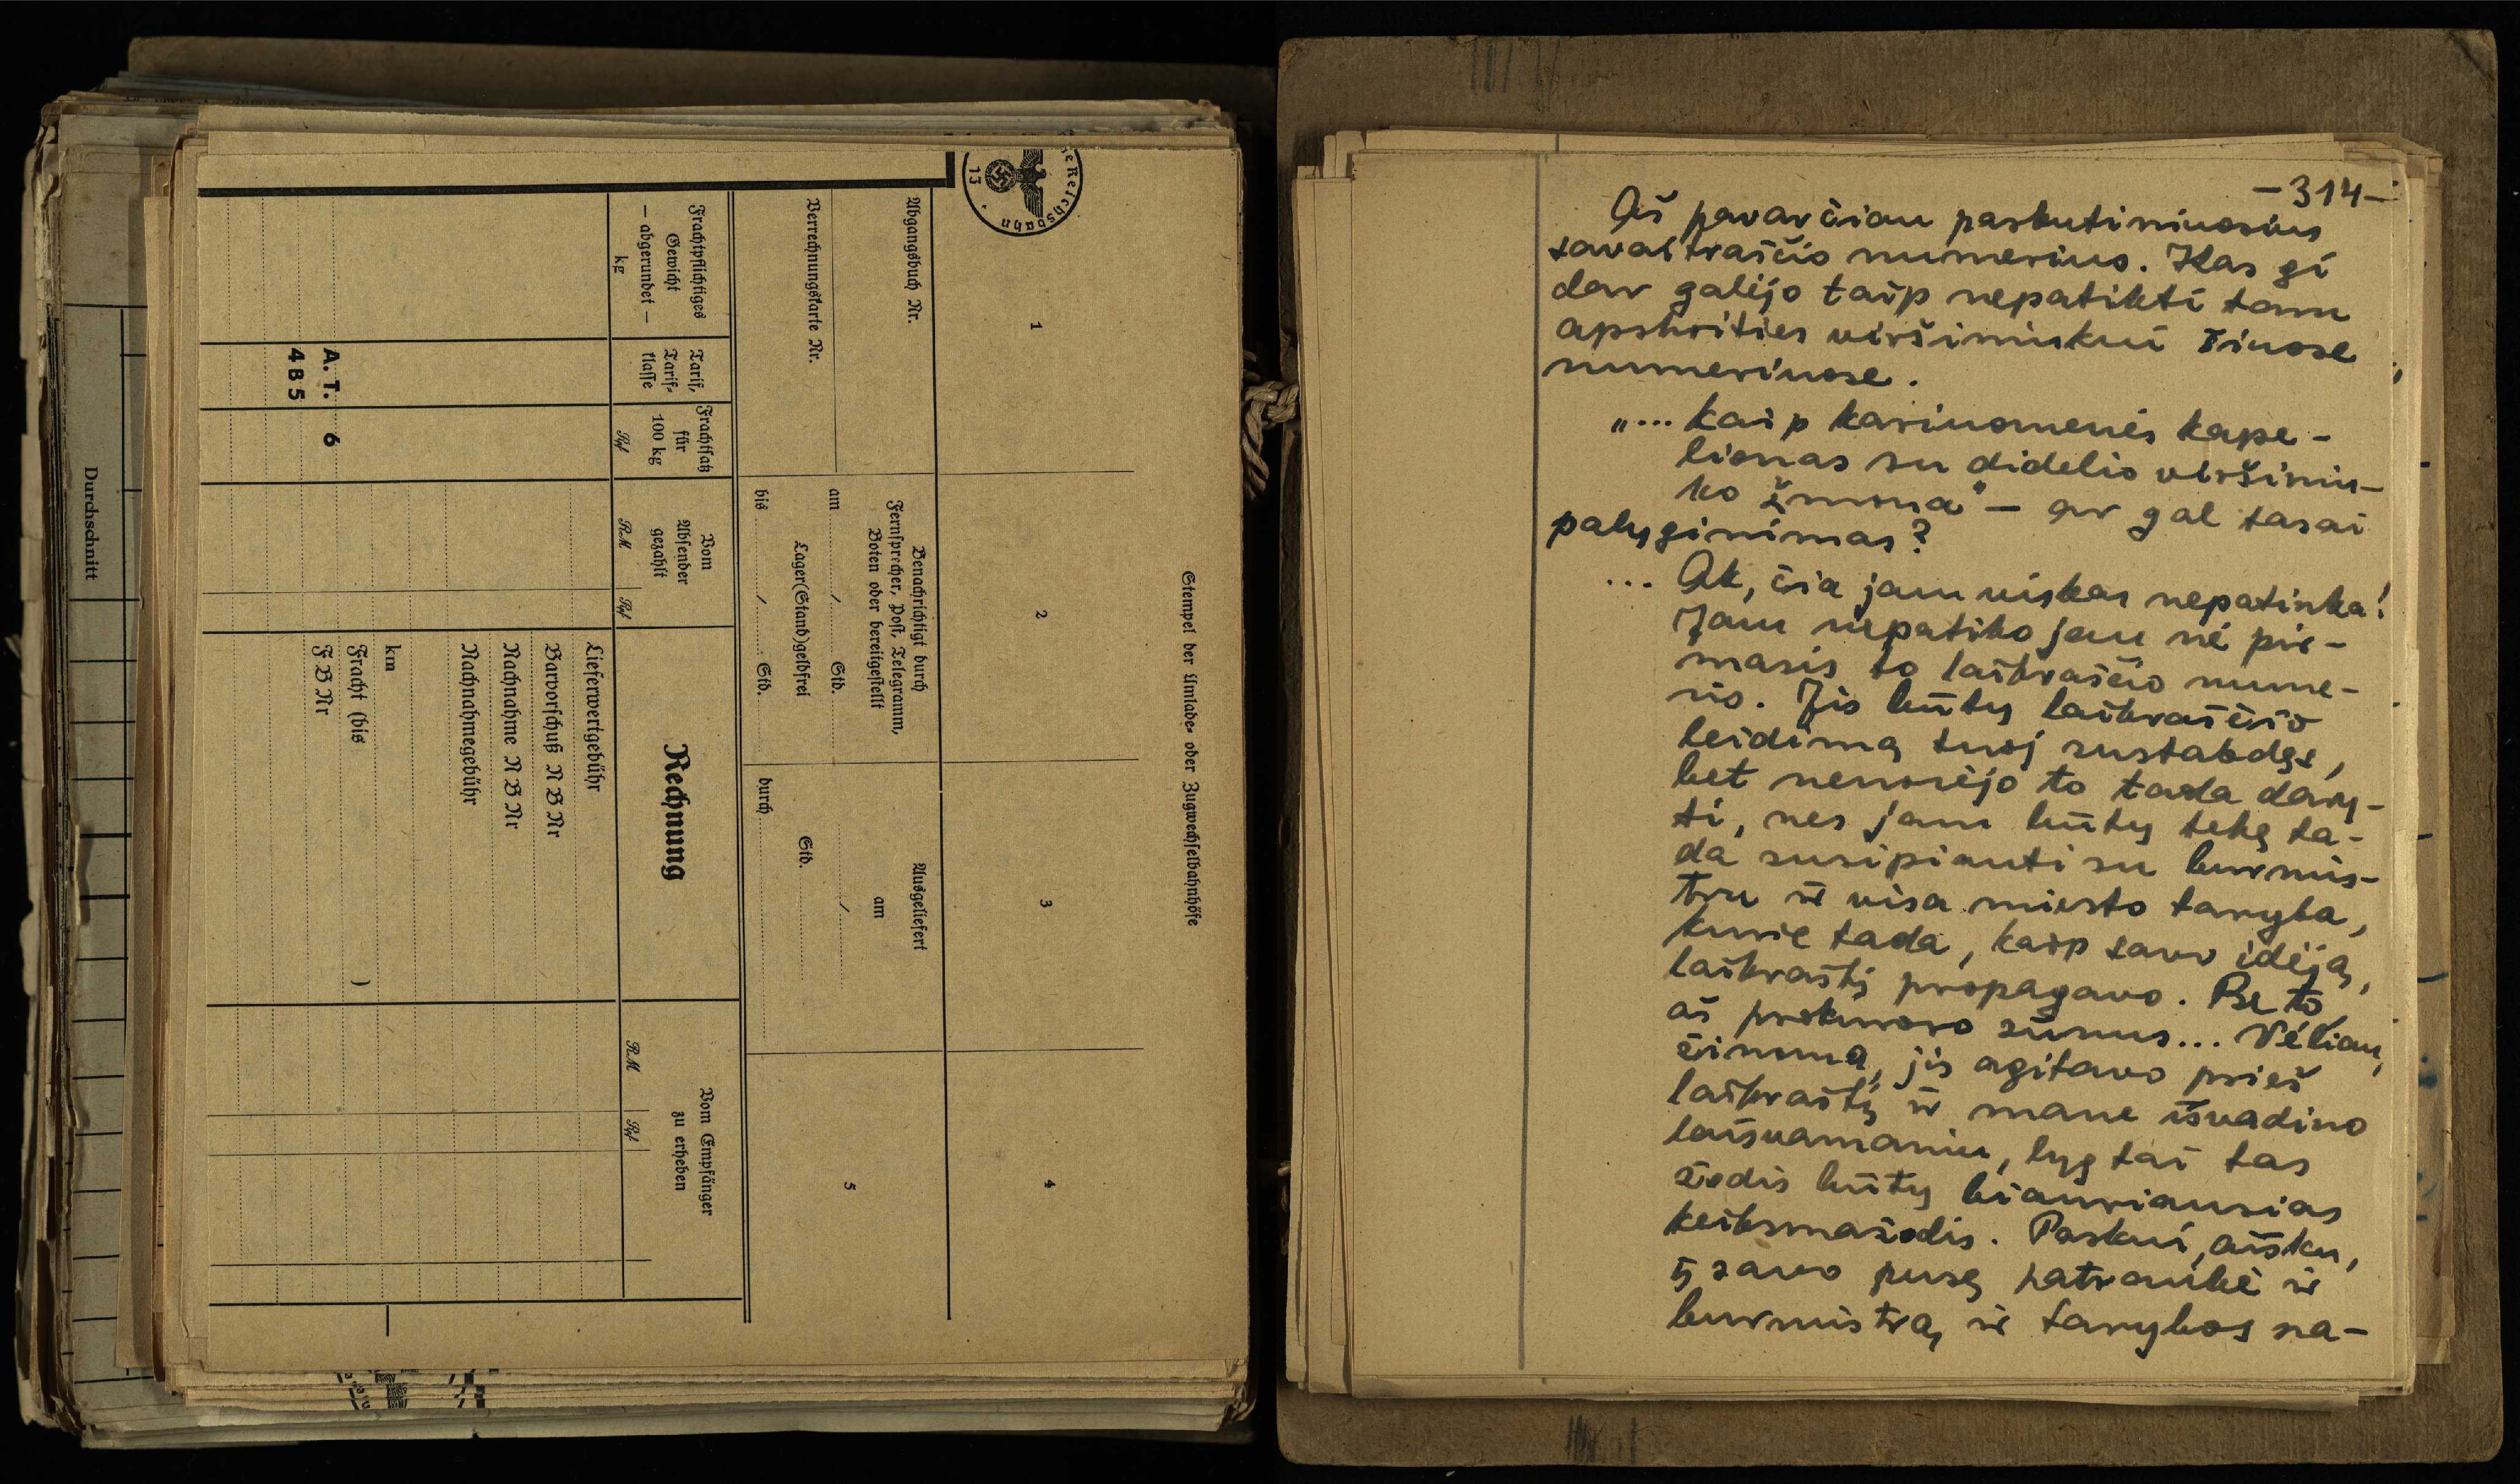 Durchschnitt
e Reichsbahn
13
Stempel der Umlade- oder Zugwechselbahnhöfe
1
2
3
4
5
Abgangsbuch Nr.
Verrechnungskarte Nr.
Benachrichtigt durch
Fernsprecher, Post, Telegramm,
Boten oder bereitgestellt
am / Std.
Lager(Stand)geldfrei
bis / Std.
Ausgeliefert
am
/
Std.
durch
Frachtpflichtiges
Gewicht
— abgerundet —
kg
Tarif,
Tarif-
klasse
Frachtsatz
für
100 kg
Rpf
Vom
Absender
gezahlt
RM
Rpf
Rechnung
Vom Empfänger
zu erheben
RM
Rpf
Lieferwertgebühr
Barvorschuß N B Nr
Nachnahme N B Nr
Nachnahmegebühr
km
Fracht (bis )
F B Nr
A. T. 6
4 8 5
—314—
Aš pavarčiau paskutiniuosius
savaitraščio numerius. Kas gi
dar galėjo taip nepatikti tam
apskrities viršininkui šiuose
numeriuose.
„... kaip kariuomenės kape-
lionas su didelio viršinin-
ko žmona" — ar gal tasai
palyginimas?
... Ak, čia jam viskas nepatinka!
Jam nepatiko jau nė pir-
masis to laikraščio nume-
ris. Jis būtų laikraščio
leidimą tuoj sustabdęs,
bet nenorėjo to tada dary-
ti, nes jam būtų tekę ta-
da susipiauti su burmis-
tru ir visa miesto taryba,
kurie tada, kaip savo idėją,
laikraštį propagavo. Be to
aš prokuroro sūnus... Vėliau,
žinoma, jis agitavo prieš
laikraštį ir mane išvadino
laisvamaniu, lyg tai tas
žodis būtų biauriausias
keiksmažodis. Paskui, aišku,
į savo pusę patraukė ir
burmistrą ir tarybos na-